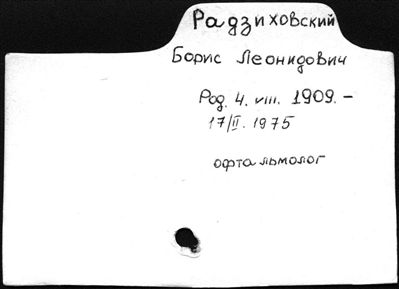 Радзиховский
Борис Леонидович
Род. 4. VIII. 1909. –
17/II. 1975
офтальмолог